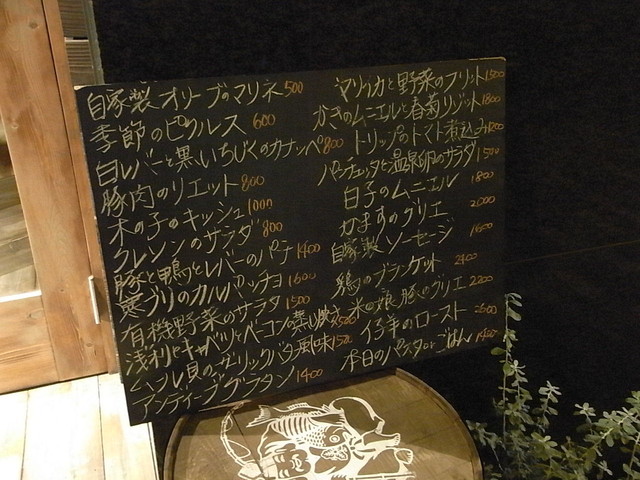 自家製オリーブのマリネ 500
季節のピクルス 600
白レバーと黒いちじくのカナッペ 800
豚肉のリエット 800
木の子のキッシュ 1000
クレソンのサラダ 800
豚と鴨とレバーのパテ 1400
寒ブリのカルパッチョ 1600
有機野菜のサラダ 1500
浅利とキャベツとベーコンの蒸し焼き
ムール貝のガーリックバター風味
アンディーブグラタン 1400
と野菜のフリット 1500
かきのムニエルと春菊リゾット 1800
トリップのトマト煮込み
パンチェッタと温泉卵のサラダ 1500
白子のムニエル 1800
かますのグリエ 2000
自家製ソーセージ 1600
鶏のブランケット 2400
米の娘豚のグリエ 2200
仔羊のロースト
本日のパスタ ごはん